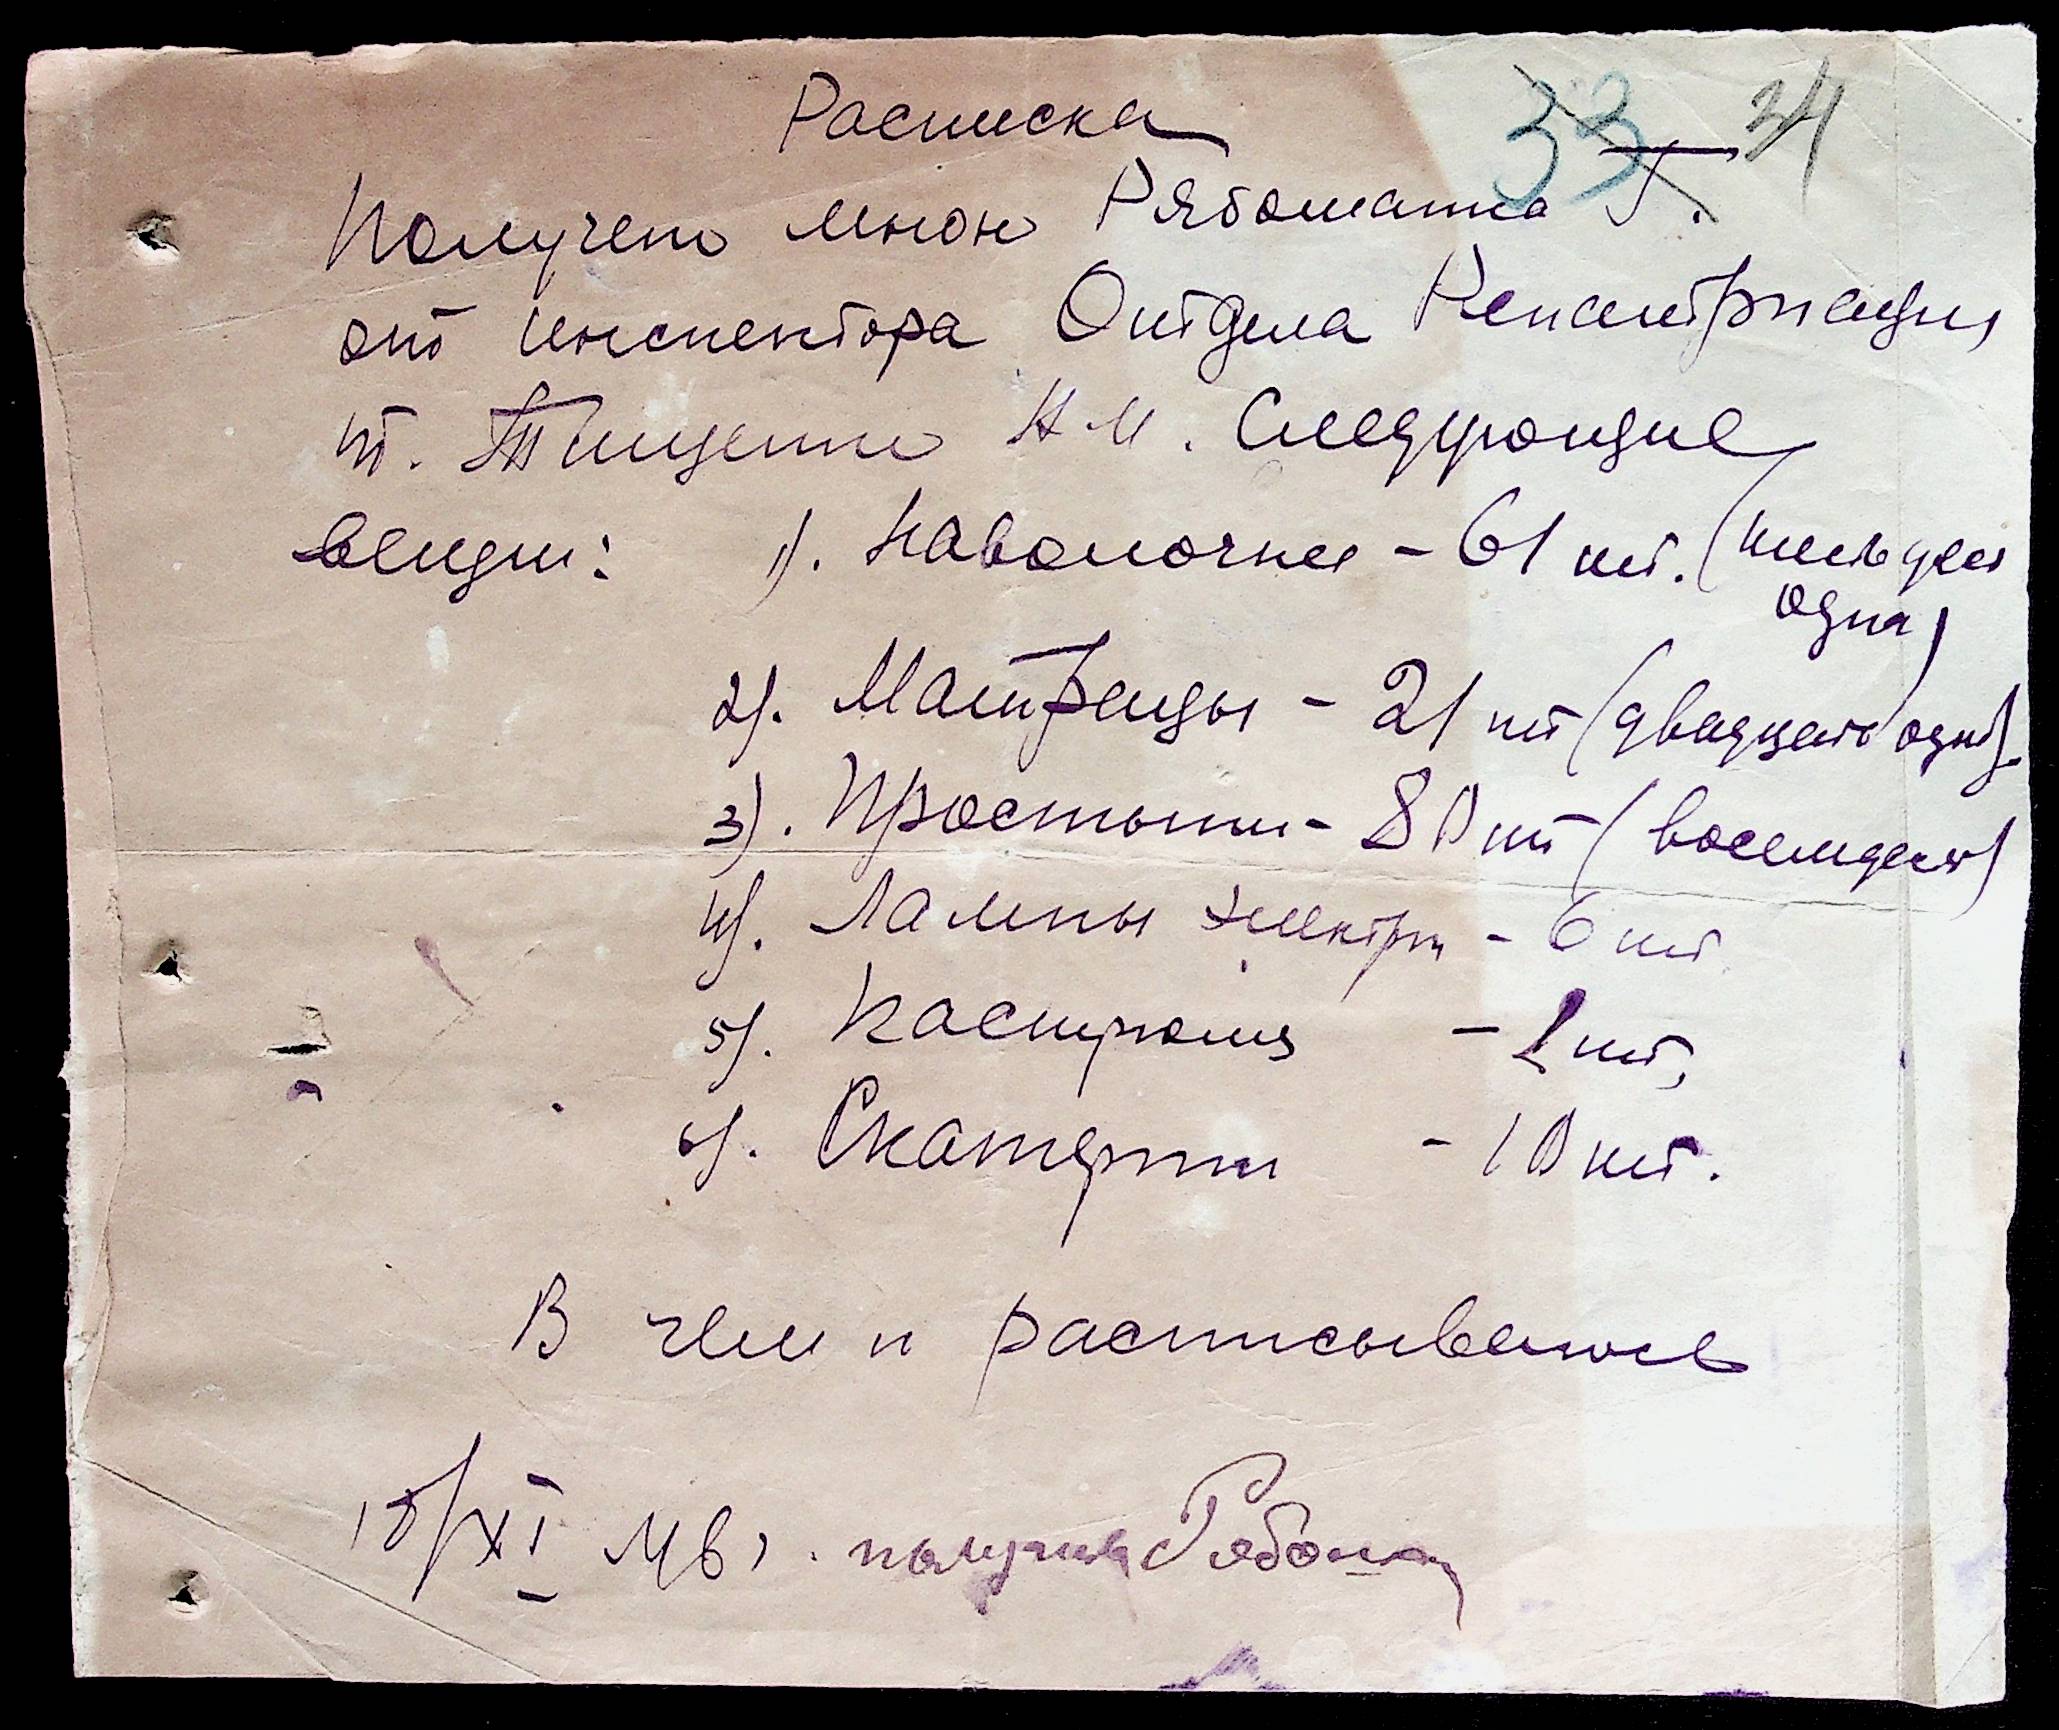 Расписка
33 34
Получено мною Рябошапка Г.
от инспектора Отдела Репатриации
т. Тищенко Н. М. Следующие
вещи: 1). Наволочки - 61 шт. (шестьдесят
одна)
2). Матрацы - 21 шт (двадцать один).
3). Простыни - 80 шт (восемдесят)
4). Лампы электри - 6 шт.
5). Кастрюля - 1 шт,
6). Скатерти - 10 шт.
В чем и расписываюсь
18/XI 46 г. получил Рябош